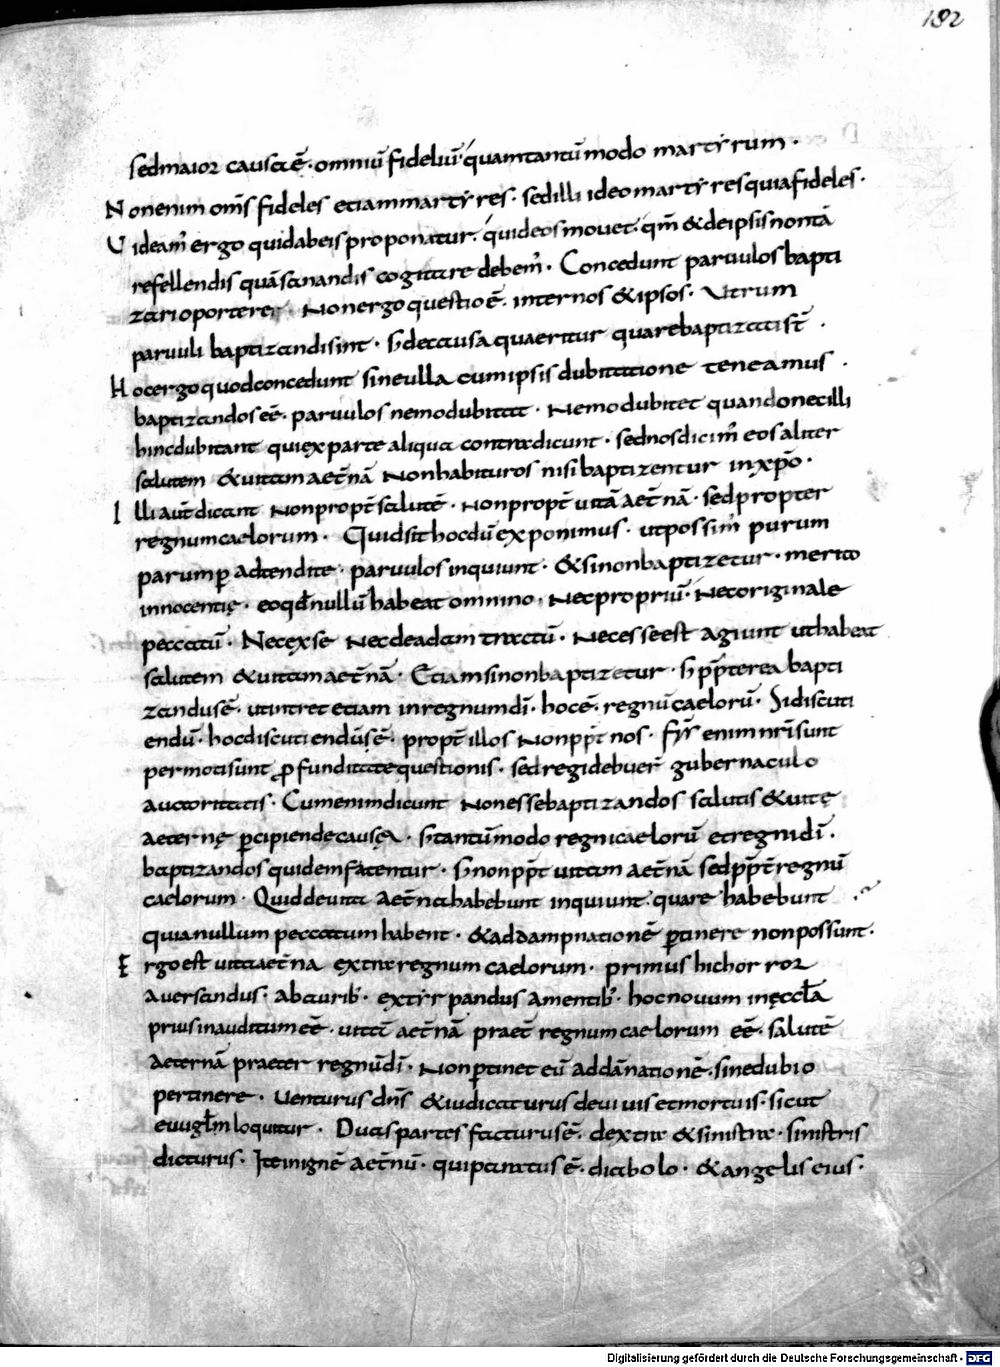 182
sedmaior causa ē · omniū fideliū · quam tantū modo martyrum ·
Nonenim om̄s fideles etiam martyres · sed illi ideo martyres quia fideles ·
Videam' ergo quid abeis proponatur · quid eos mouet · qm̄ & de ipsis non tā
refellendis quā sanandis cogitare debem' · Concedunt paruulos bapti
zari oportere · Non ergo questio ē · inter nos & ipsos · Vtrum
paruuli baptizandi sint · s; de causa quaeritur quare baptizati st̄ ·
Hoc ergo quod concedunt sine ulla cum ipsis dubitatione teneamus ·
baptizandos eē · paruulos nemo dubitat · Nemo dubitet quando nec illi
hinc dubitant qui ex parte aliqua contradicunt · sed nos dicim' eos aliter
salutem & uitam aet̄nā non habituros nisi baptizentur in xp̄o ·
Illi aut̄ dicant non propt̄ salutē · non propt̄ uitā aet̄nā · sed propter
regnum caelorum · Quid sit hoc dū exponimus · ut possim' purum
parum ꝑ adtendite · paruulos inquiunt · & si non baptizetur · merito
innocentię · eo qd̄ nullū habeat omnino · nec propriū · nec originale
peccatū · Nec ex se nec de adam tractū · necesse est agiunt ut habeat
salutem & uitam aet̄nā · Etiam si non baptizetur · s; pp̄terea bapti
zandus ē · ut intret etiam in regnum dī · hoc ē · regnū caelorū · Si discuti
endū · hoc discutiendū sē · propt̄ illos non pp̄t nos · fr̄s enim nr̄i sunt
permoti sunt ꝓfunditate questionis · sed regi debuer̄ gubernaculo
auctoritatis · Cum enim dicunt non esse baptizandos salutis & uitę
aeternę ꝑcipiende causa · s; tantū modo regni caelorū et regni dī ·
baptizandos quidem fatentur · s; non pp̄t uitam aet̄nā sed pp̄t regnū
caelorum · Quid de uita aet̄na habebunt inquiunt · quare habebunt ·
quia nullum peccatum habent · & ad dampnationē ꝑtinere non possunt ·
Ergo est uita aet̄na extra regnum caelorum · primus hic hor ror
auersandus · ab aurib' · extirpandus a mentib' · hoc nouum in ęccl̄a
prius inauditum eē · uitā aet̄nā praet̄ regnum caelorum eē · salutē
aeternā praeter regnū dī · non ꝑtinet eū ad dānationē · sine dubio
pertinere · Venturus dn̄s & iudicaturus de uiuis et mortuis · sicut
euuglm̄ loquitur · Duas partes facturus ē · dextra & sinistra · sinistris
dicturus · Ite in ignē aet̄nū · qui paratus ē · diabolo · & angelis eius ·
Digitalisierung gefördert durch die Deutsche Forschungsgemeinschaft - DFG